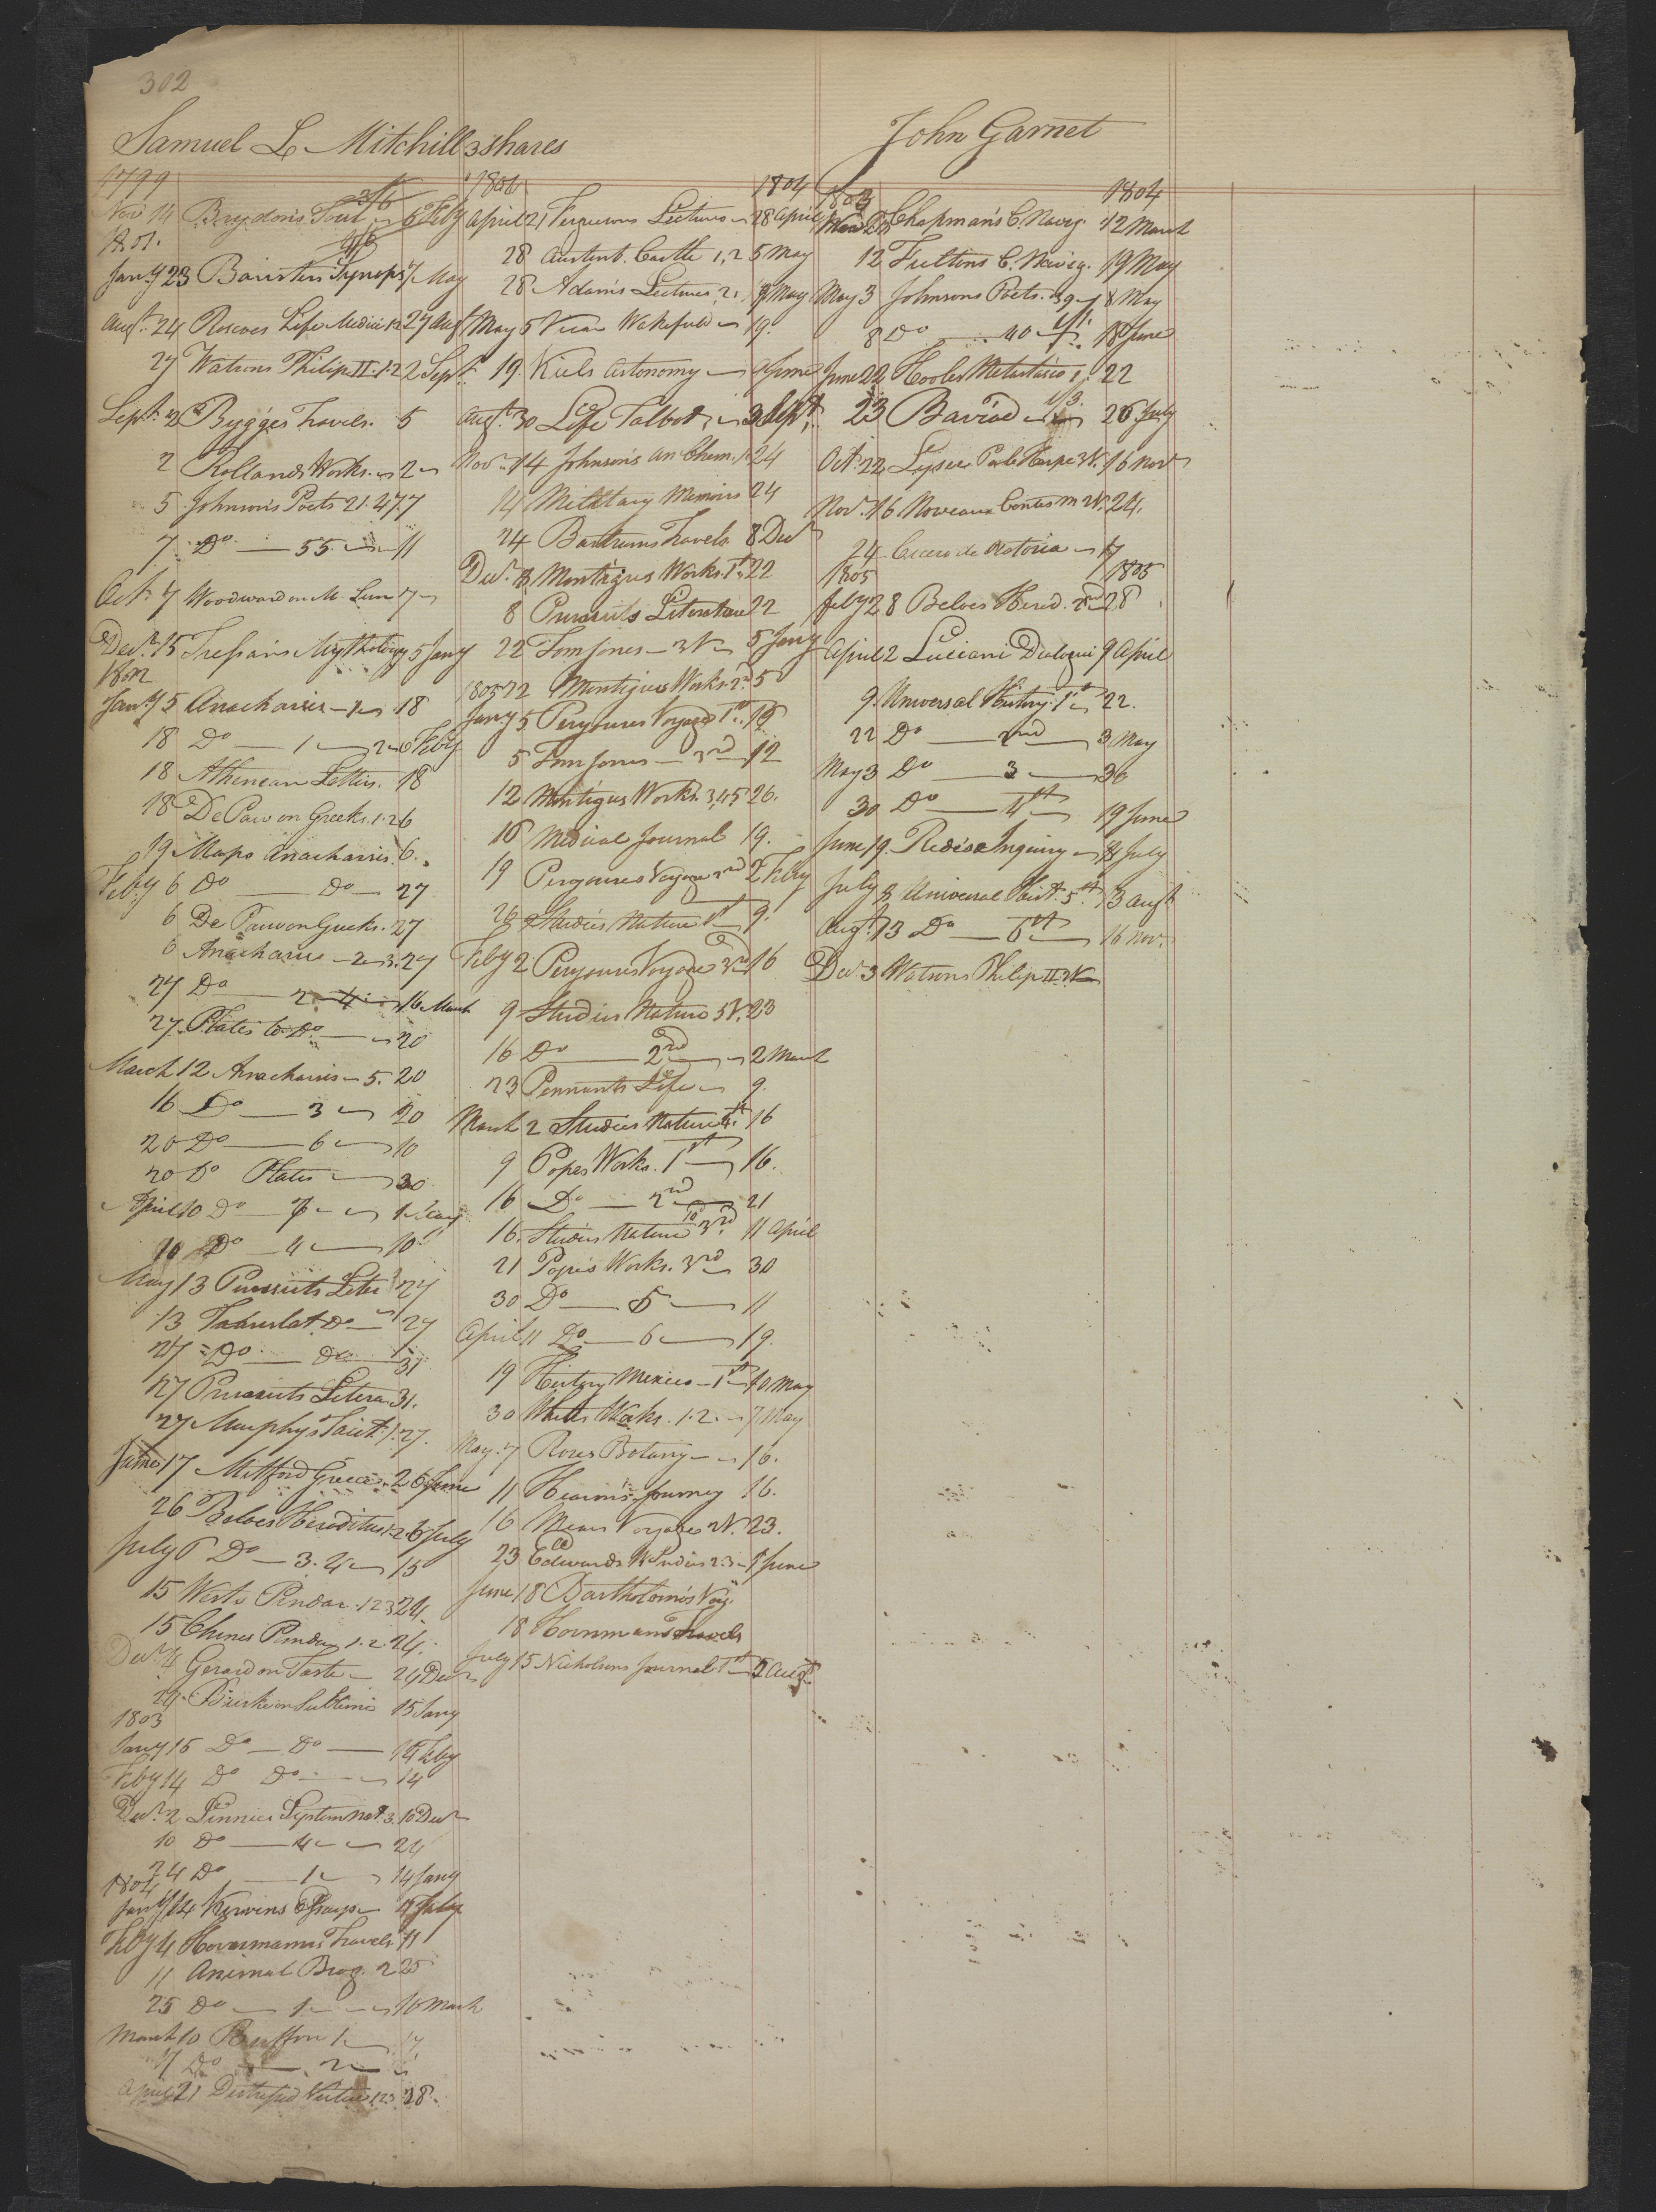 302
Samuel L Mitchill 3 shares
1799
Nov 14 Brydon's Tour 6 Feby
1801.
Jany 23 Baristers Synops 7 May
Augt. 24 Roscoes Life Medici 1.2 27 Augt
27 Watsons Philip II. 1.2 2 Sept.
Sept. 2 Bygges Travels. 5
2 Rollands Works. 2
5 Johnson's Poets 21. 47. 7
7 Do 55. 11
Oct. 7 Woodward on M. Lun 7
Decr. 15 Tressans Mythology 5 Jany
1802
Jany 5 Anacharsis 18
18 Do 1 2 6 Feby
18 Athenean Letters. 18
18 De Paw on Greeks. 1.2 6
19 Maps Anacharsis. 6.
Feby 6 Do Do 27
6 De Pauw on Greeks. 27
6 Anacharsis 2 3. 27
27 Do 2 4 16 March
27 Plates to Do 20
March 12 Anacharsis 5. 20
16 Do 3 20
20 Do 6 10
20 Do Plates 30
April 10 Do 7 1 May
10 Do 4 10
May 13 Pursuits Liter 27
13 Translat. Do 27
27 Do Do 31
27 Pursuits Litera 31.
27 Murphys Tacit. 1. 27.
June 17 Mitford Greece. 26 June
26 Beloes Heroditus 1.2 6 July
July 6 Do 3. 4 15
15 Wests Pindar. 1 2 3 24.
15 Greenes Pindar 1.2. 24.
Decr. 4 Gerard on Taste 24 Decr
24. Burke on Sublime 15 Jany
1803
Jany 15 Do Do 14 Feby
Feby 14 Do Do 14
Decr. 2 Linnees System Nat. 3. 10 Decr
10 Do 4 24
24 Do 1 14 Jany
1804
Jany 14 Kirwins Essays 4 Feby
Feby 4 Hornemanns Travels 11
11 Animal Biog. 2 25
25 Do 1 10 March
March 10 Buffon 1 17
17 Do 2
April 21 Distressed Virtue 1 2 3 28.
1804 1804
April 21 Fergusons Lectures 28 April
28 Austenb. Castle 1, 2 5 May
28 Adams Lectures, 2, 9 May
May 5 Vicar Wakefield 19.
19. Kiels Astonomy June
Augt. 30 Life Talbot, 3 Sept.
Novr. 14 Johnson's an Chem. 1. 24
14 Military Memoirs 24
24 Bartrams Travels 8 Decr
Decr. 8 Montagus Works. 1st. 22
8 Pursuits Literature 22
22 Tom Jones 3 V 5 Jany
1805 22 Montigues Works. 2d. 5
Jany 5 Peryouses Voyage 1st. 19
5 Tom Jones 3rd 12
12 Montigus Works. 3,4,5 26.
16 Medical Journal 19.
19 Peryouses Voyage 2nd 2 Feby
26 Studies Nature 1st 9.
Feby 2 Peryouses Voyage 3rd 16
9 Studies Nature 5 V. 23
16 Do 2nd 2 March
23 Pennants Life 9.
March 2 Studies Nature 4th. 16
9 Popes Works. 1st 16.
16 Do 2nd 21
16. Studies Nature 3rd. 11 April
21 Popes Works. 3rd 30
30 Do 5 11
April 11 Do 6 19.
19 History Mexico 1st 10 May
30 Whites Works. 1.2. 7 May
May. 7 Roses Botany 16.
11 Hearns Journey 16.
16 Mears Voyages 2 V. 23.
23 Edwards W Indies 2.3 1 June
June 18 Bartholomos Voy.
18 Hornmans Travels
July 15 Nicholsons Journal 1st 2 Augt.
John Garnet
1803 1804
Chapman's C. Navig 12 March
12 Fultons C. Navig. 19 May
May 3 Johnsons Poets. 39 8 May
8 Do 40 18 June
June 22 Hooles Metastasio 1. 22
23 Baviad 26 July
Oct. 22 Lysee Par la Harpe 3 V. 16 Nov
Nov. 16 Noveaux Contes M 2 V. 24.
24 Cicero de Oratoria 17
1805 1805
Feby 28 Beloes Herod. 2nd 28
April 2 Luciani Dialogui 9 April
9. Universal History 1st 22.
22 Do 2nd 3 May
May 3 Do 3 30
30 Do 4th 19 June
June 19. Reids Inquiry 8 July
July 8 Universal Hist. 5th. 13 Augt
Augt. 13 Do 6th 16 Nov.
Decr 3 Watsons Philip II. 2 V